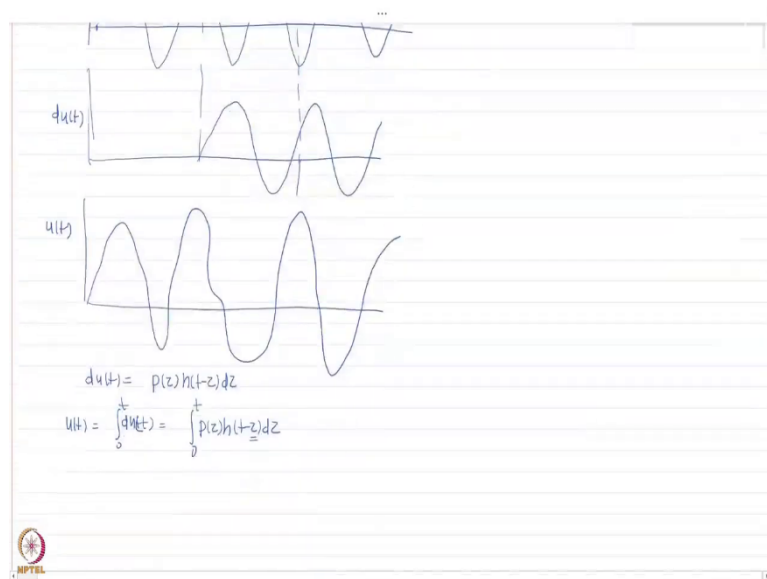 ...
du(t)
u(t)
du(t) = p(τ)h(t-τ)dτ
u(t) = ∫₀ᵗ du(t) = ∫₀ᵗ p(τ)h(t-τ)dτ
NPTEL